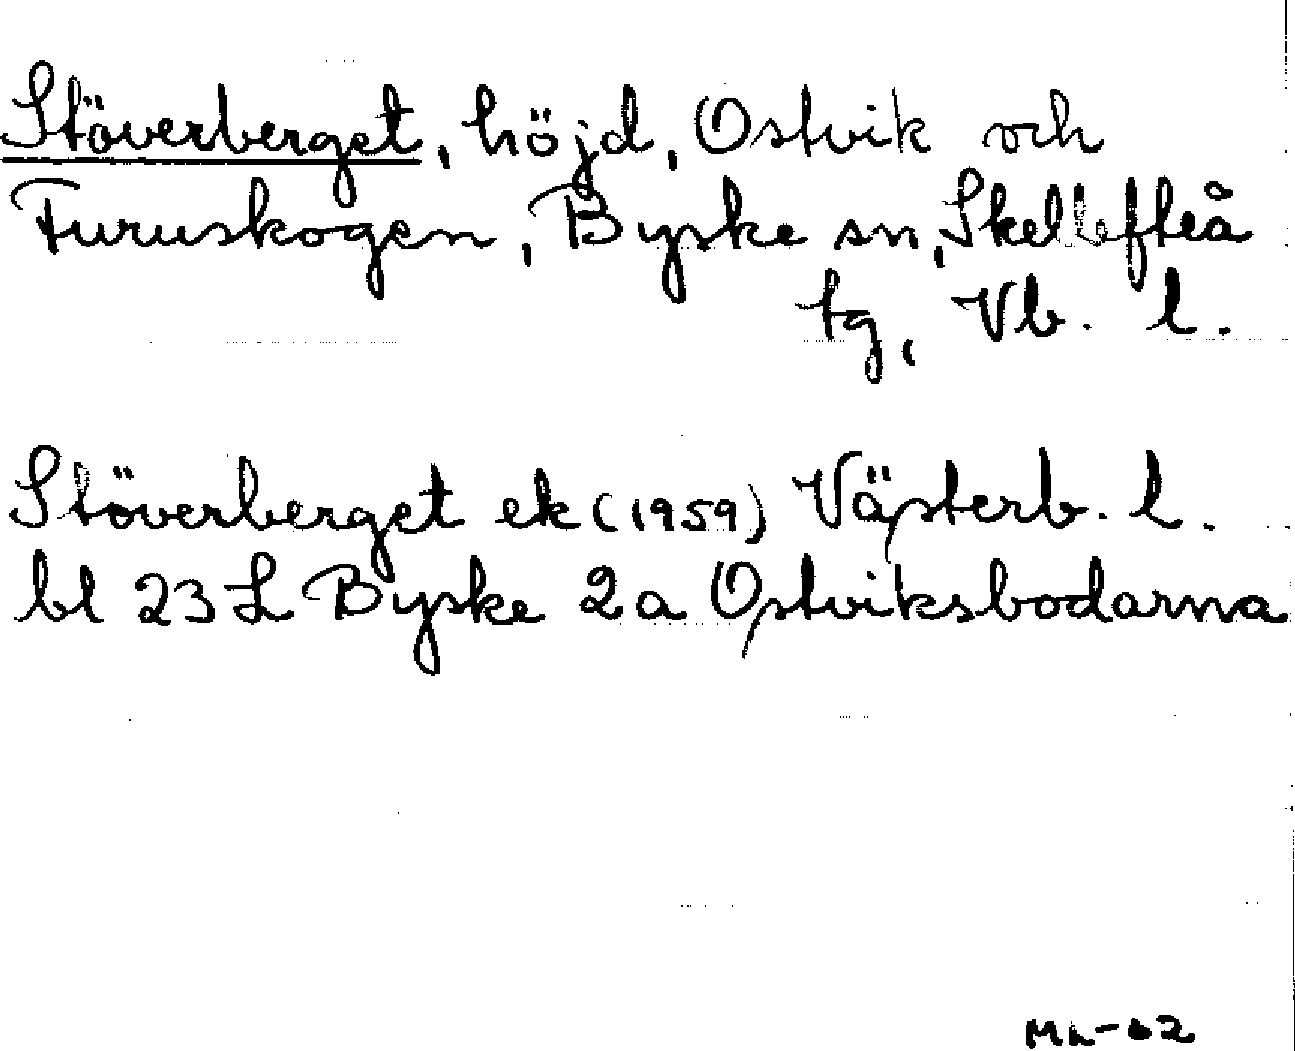 Stöverberget, höjd, Ostvik och
Furuskogen, Byske sn, Skellefteå
tg, Vb. l.
Stöverberget ek (1959) Västerb. l.
bl 23 L Byske 2a Ostviksbodarna